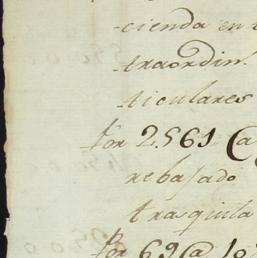 -cienda en
traordin.
ticulares
Por 2.561 @
rebajado
trasquila
Por 69 @ 10